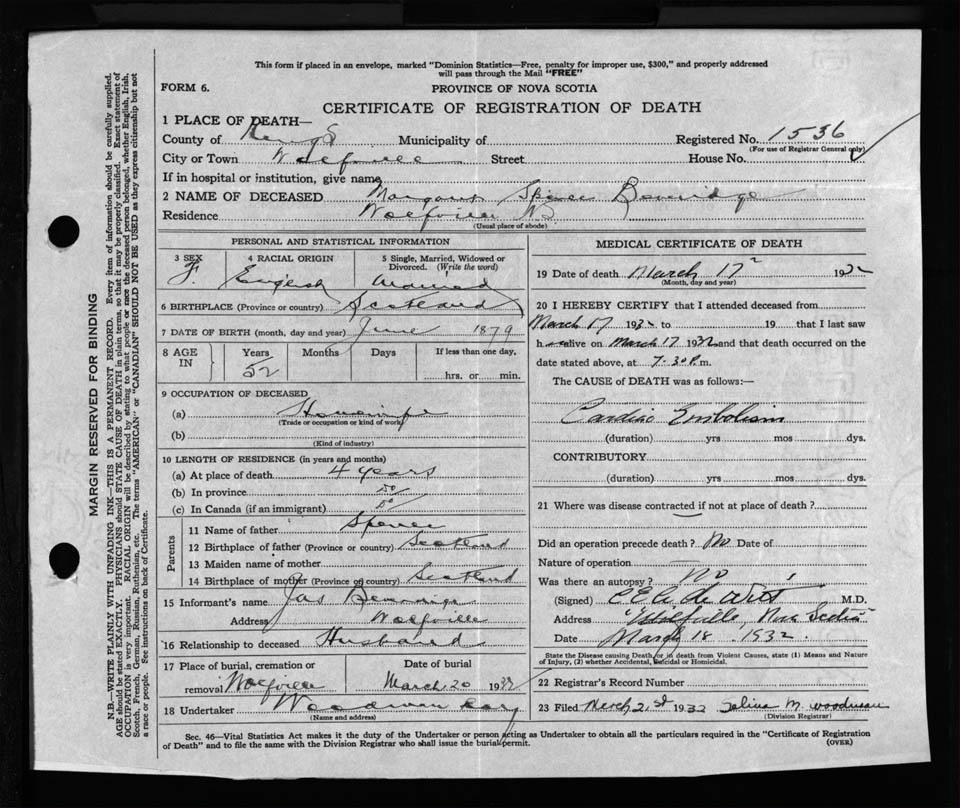 This form if placed in an envelope, marked "Dominion Statistics—Free, penalty for improper use, $300," and properly addressed
will pass through the Mail "FREE"
FORM 6.
PROVINCE OF NOVA SCOTIA
CERTIFICATE OF REGISTRATION OF DEATH
1 PLACE OF DEATH—
County of Kings Municipality of Registered No. 1536
(For use of Registrar General only)
City or Town Wolfville Street House No.
If in hospital or institution, give name
2 NAME OF DECEASED Margaret Spence
Residence Wolfville NS
(Usual place of abode)
PERSONAL AND STATISTICAL INFORMATION
3 SEX F.
4 RACIAL ORIGIN English
5 Single, Married, Widowed or Divorced. (Write the word) Married
6 BIRTHPLACE (Province or country) Scotland
7 DATE OF BIRTH (month, day and year) June 1879
8 AGE IN Years 52 Months Days If less than one day, hrs. or min.
9 OCCUPATION OF DECEASED
(a) Housewife
(Trade or occupation or kind of work)
(b)
(Kind of industry)
10 LENGTH OF RESIDENCE (in years and months)
(a) At place of death 4 years
(b) In province Do
(c) In Canada (if an immigrant) Do
Parents
11 Name of father Spence
12 Birthplace of father (Province or country) Scotland
13 Maiden name of mother
14 Birthplace of mother (Province or country) Scotland
15 Informant's name Jas
Address Wolfville
16 Relationship to deceased Husband
17 Place of burial, cremation or removal Wolfville
Date of burial March 20 1932
18 Undertaker Woodman
(Name and address)
MEDICAL CERTIFICATE OF DEATH
19 Date of death March 17 1932
(Month, day and year)
20 I HEREBY CERTIFY that I attended deceased from
March 17 1932 to 19 that I last saw
h alive on March 17 1932 and that death occurred on the
date stated above, at 7.30 P.m.
The CAUSE of DEATH was as follows:—
Cardiac Embolism
(duration) yrs mos dys.
CONTRIBUTORY
(duration) yrs mos dys.
21 Where was disease contracted if not at place of death?
Did an operation precede death? No Date of
Nature of operation
Was there an autopsy? No
(Signed) de Witt M.D.
Address Wolfville, Nova Scotia
Date March 18 1932.
State the Disease causing Death, or in death from Violent Causes, state (1) Means and Nature
of Injury, (2) whether Accidental, Suicidal or Homicidal.
22 Registrar's Record Number
23 Filed March 21st 1932 M. Woodman
(Division Registrar)
Sec. 46—Vital Statistics Act makes it the duty of the Undertaker or person acting as Undertaker to obtain all the particulars required in the "Certificate of Registration
of Death" and to file the same with the Division Registrar who shall issue the burial permit.
(OVER)
MARGIN RESERVED FOR BINDING
N.B.—WRITE PLAINLY WITH UNFADING INK—THIS IS A PERMANENT RECORD. Every item of information should be carefully supplied.
AGE should be stated EXACTLY. PHYSICIANS should STATE CAUSE OF DEATH in plain terms, so that it may be properly classified. Exact statement of
OCCUPATION is very important. RACIAL ORIGIN will be described by stating to what people or race the deceased person belonged, whether English, Irish,
Scotch, French, German, Russian, Ruthenian, etc. The terms "AMERICAN" or "CANADIAN" SHOULD NOT BE USED as they express citizenship but not
a race or people. See instructions on back of Certificate.